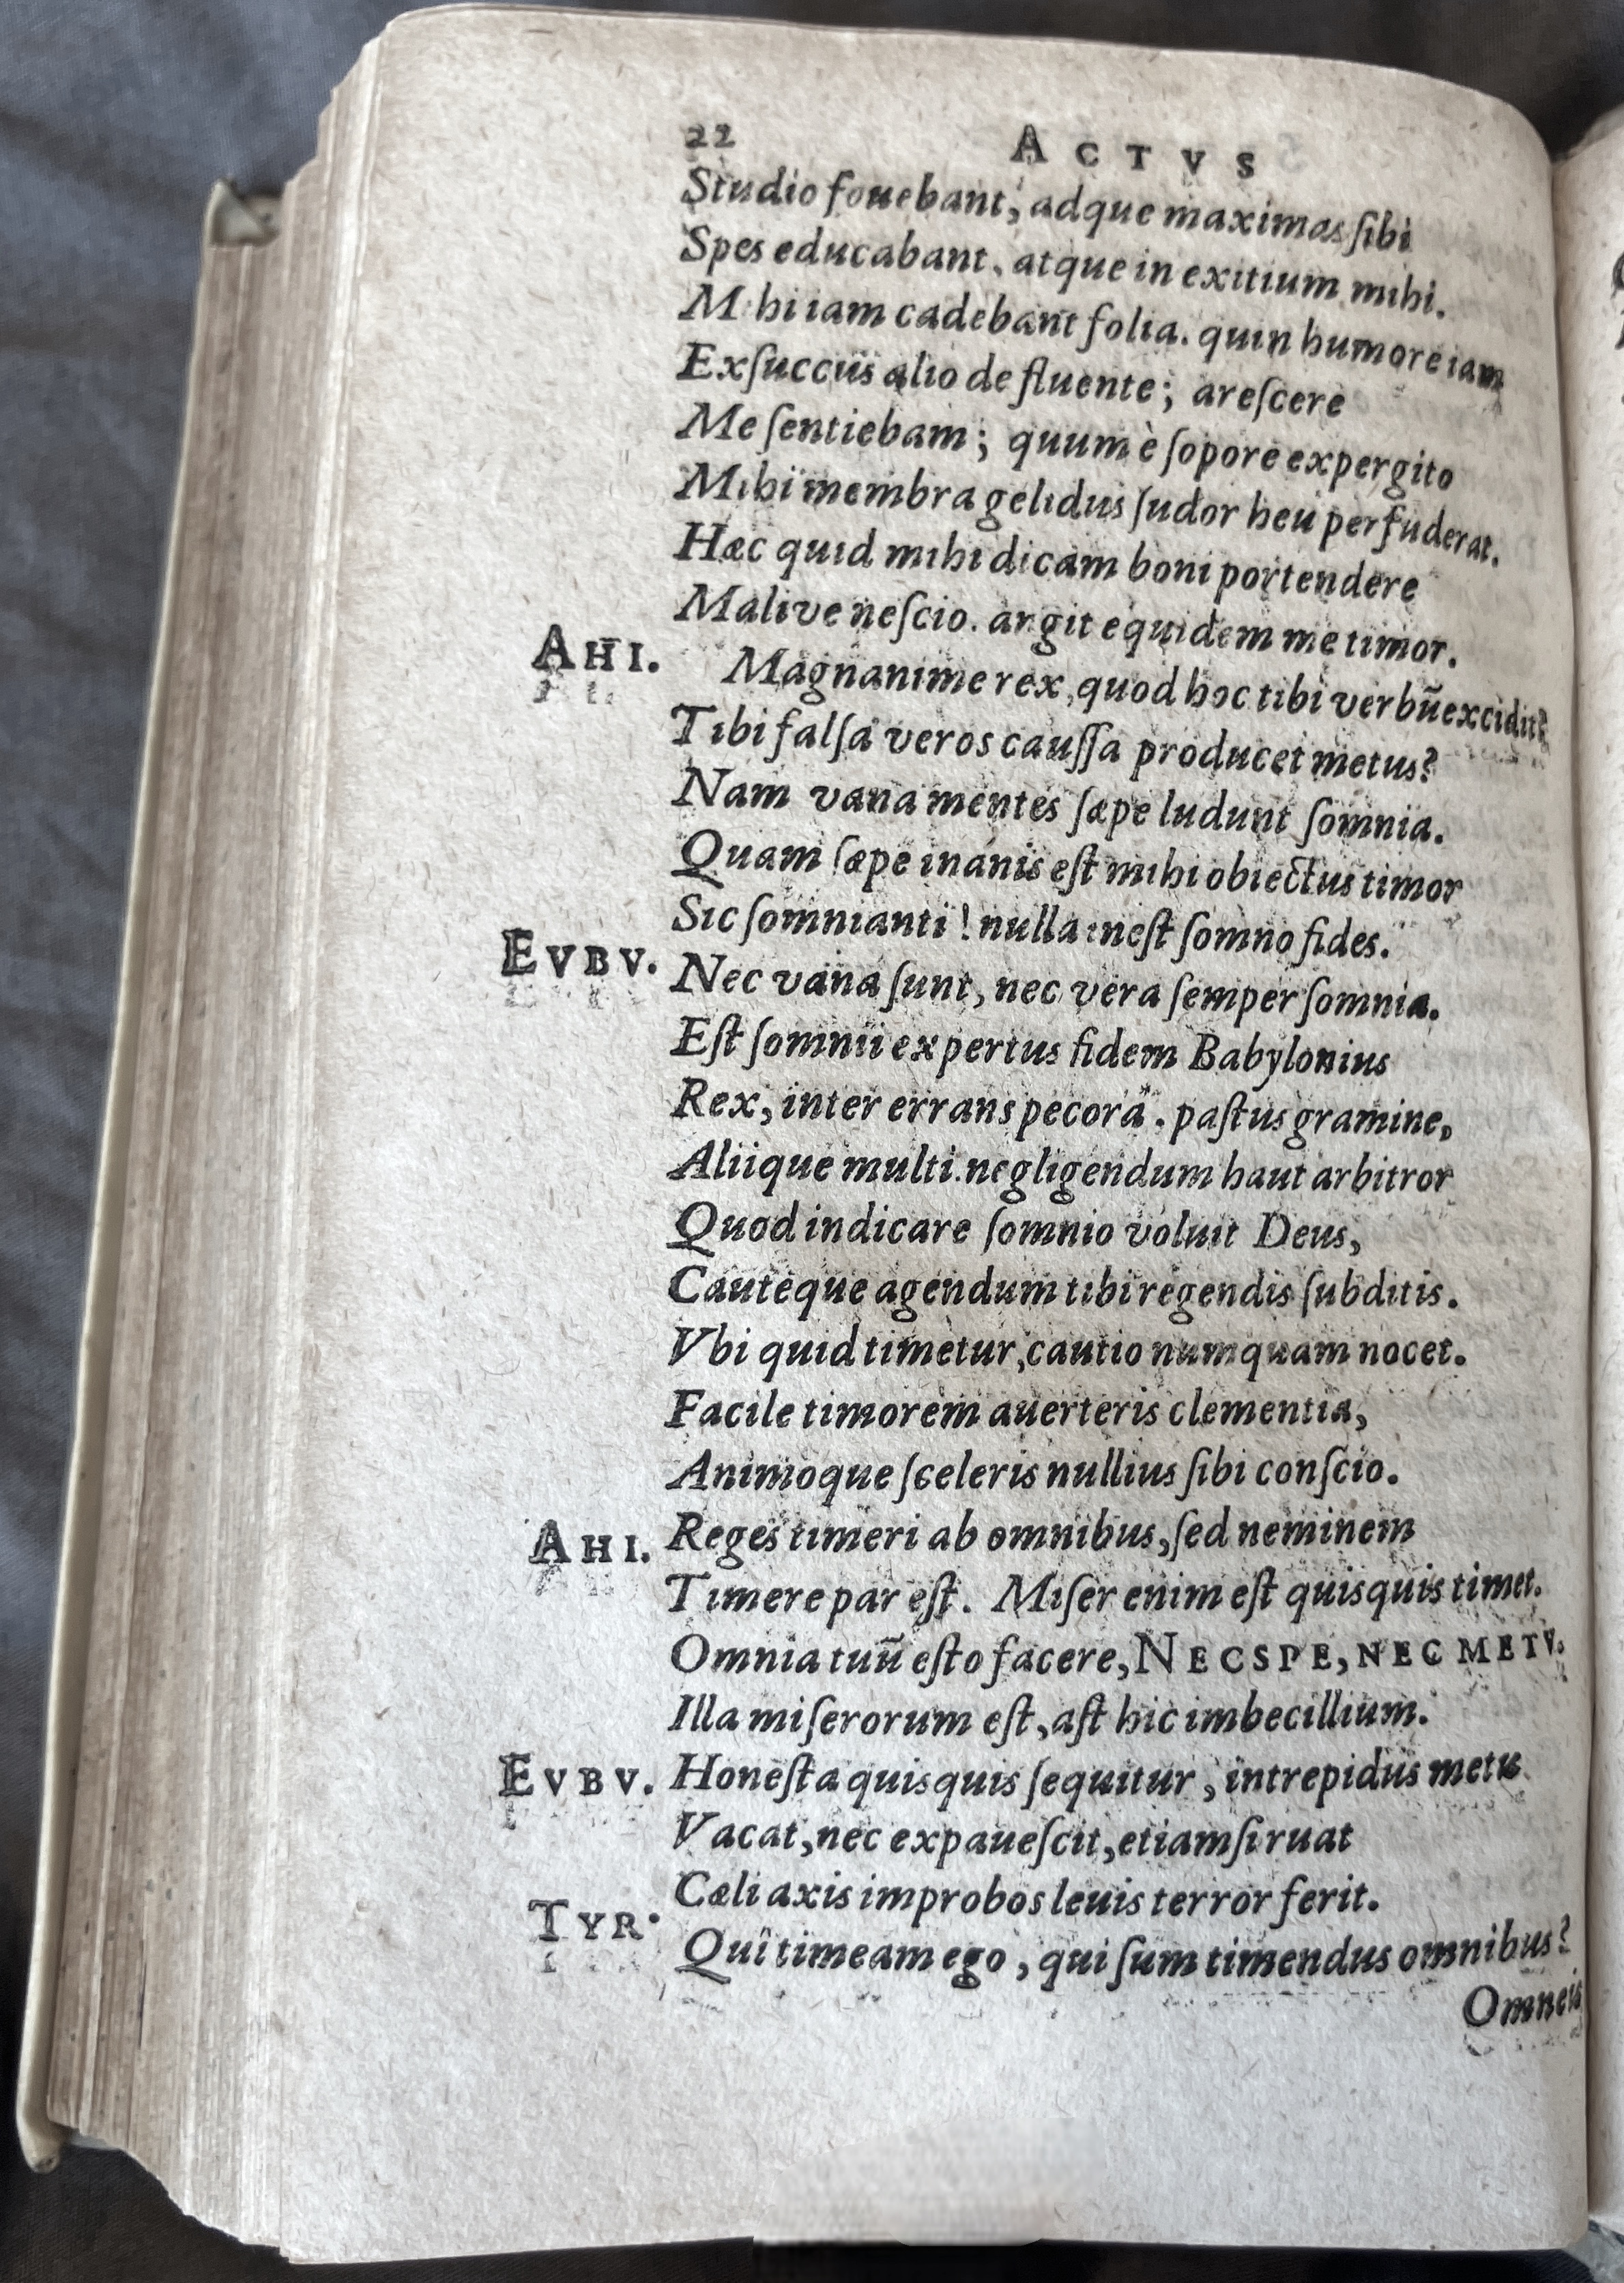 22 ACTVS
Studio fouebant, adque maximas ſibi
Spes educabant. atque in exitium mihi.
Mihi iam cadebant folia. quin humore iam
Exſuccus alio defluente; areſcere
Me ſentiebam; quum è ſopore expergito
Mihi membra gelidus ſudor heu perfuderat.
Hæc quid mihi dicam boni portendere
Malive neſcio. angit equidem me timor.
AHI. Magnanime rex, quod hoc tibi verbū excidit?
Tibi falſa veros cauſſa producet metus?
Nam vana mentes ſæpe ludunt ſomnia.
Quam ſæpe inanis eſt mihi obiectus timor
Sic ſomnianti! nulla ineſt ſomno fides.
EVBV. Nec vana ſunt, nec vera ſemper ſomnia.
Eſt ſomnii expertus fidem Babylonius
Rex, inter errans pecora. paſtus gramine,
Aliique multi. negligendum haut arbitror
Quod indicare ſomnio voluit Deus,
Cauteque agendum tibi regendis ſubditis.
Vbi quid timetur, cautio numquam nocet.
Facile timorem auerteris clementia,
Animoque ſceleris nullius ſibi conſcio.
AHI. Reges timeri ab omnibus, ſed neminem
Timere par eſt. Miſer enim eſt quisquis timet.
Omnia tuū eſto facere, NEC SPE, NEC METV.
Illa miſerorum eſt, aſt hic imbecillium.
EVBV. Honeſta quisquis ſequitur, intrepidus metu
Vacat, nec expaueſcit, etiamſi ruat
Cæli axis improbos leuis terror ferit.
TYR. Quî timeam ego, qui ſum timendus omnibus?
Omneis